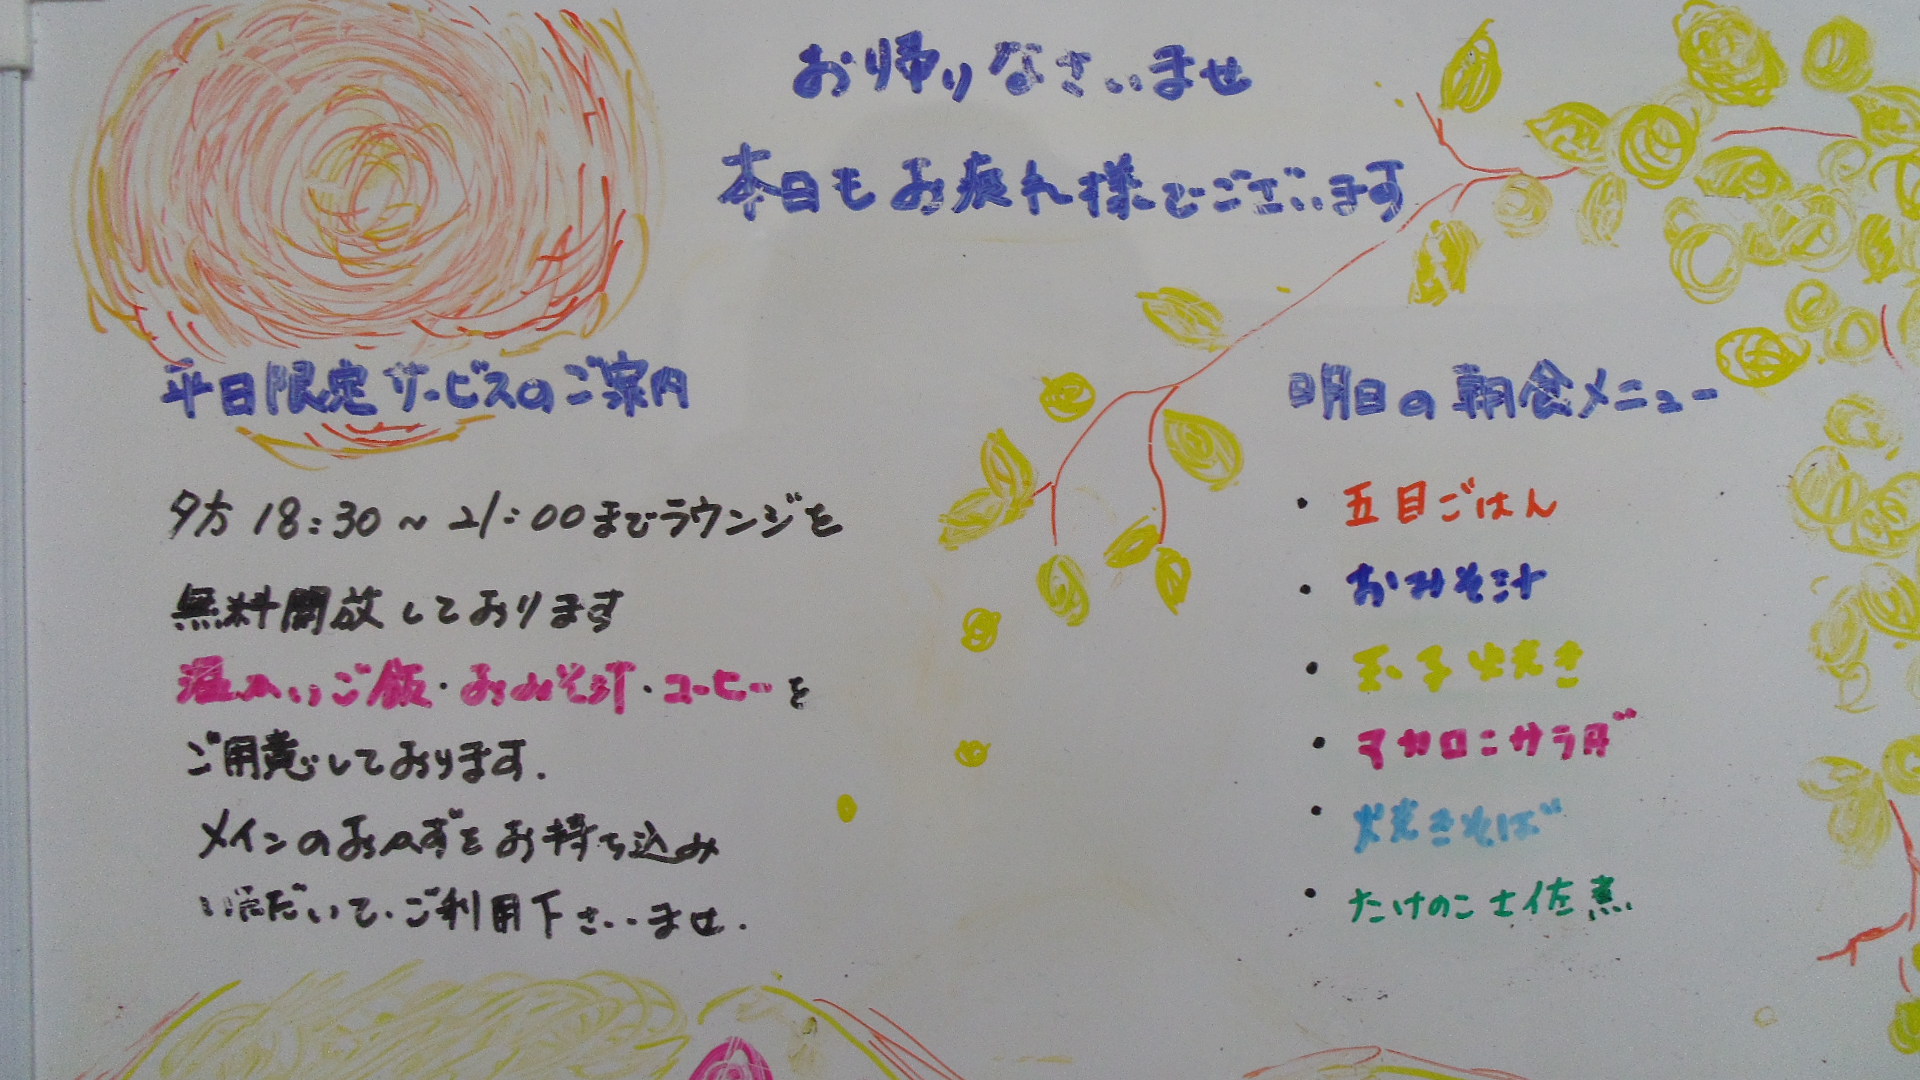 お帰りなさいませ
本日もお疲れ様でございます
平日限定サービスのご案内
夕方 18:30 ~ 21:00までラウンジを
無料開放しております
温かいご飯・おみそ汁・コーヒーを
ご用意しております.
メインのおかずをお持ち込み
いただいて、ご利用下さいませ.
明日の朝食メニュー
・五目ごはん
・おみそ汁
・玉子焼き
・マカロニサラダ
・焼きそば
・たけのこ土佐煮